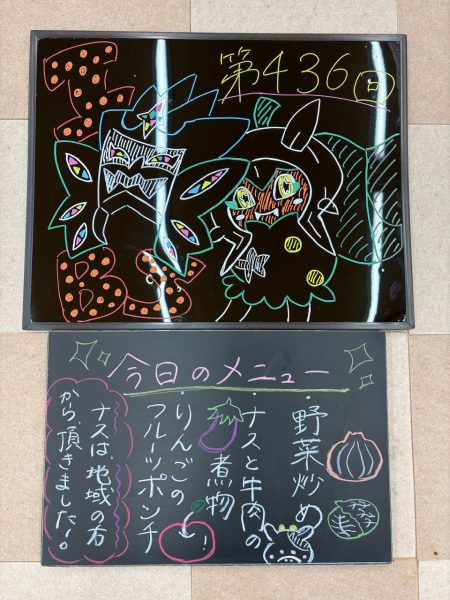 第436回
BS
今日のメニュー
・野菜炒め
・ナスと牛肉の
煮物
・りんごの
フルーツポンチ
ナスは、地域の方
から頂きました!。